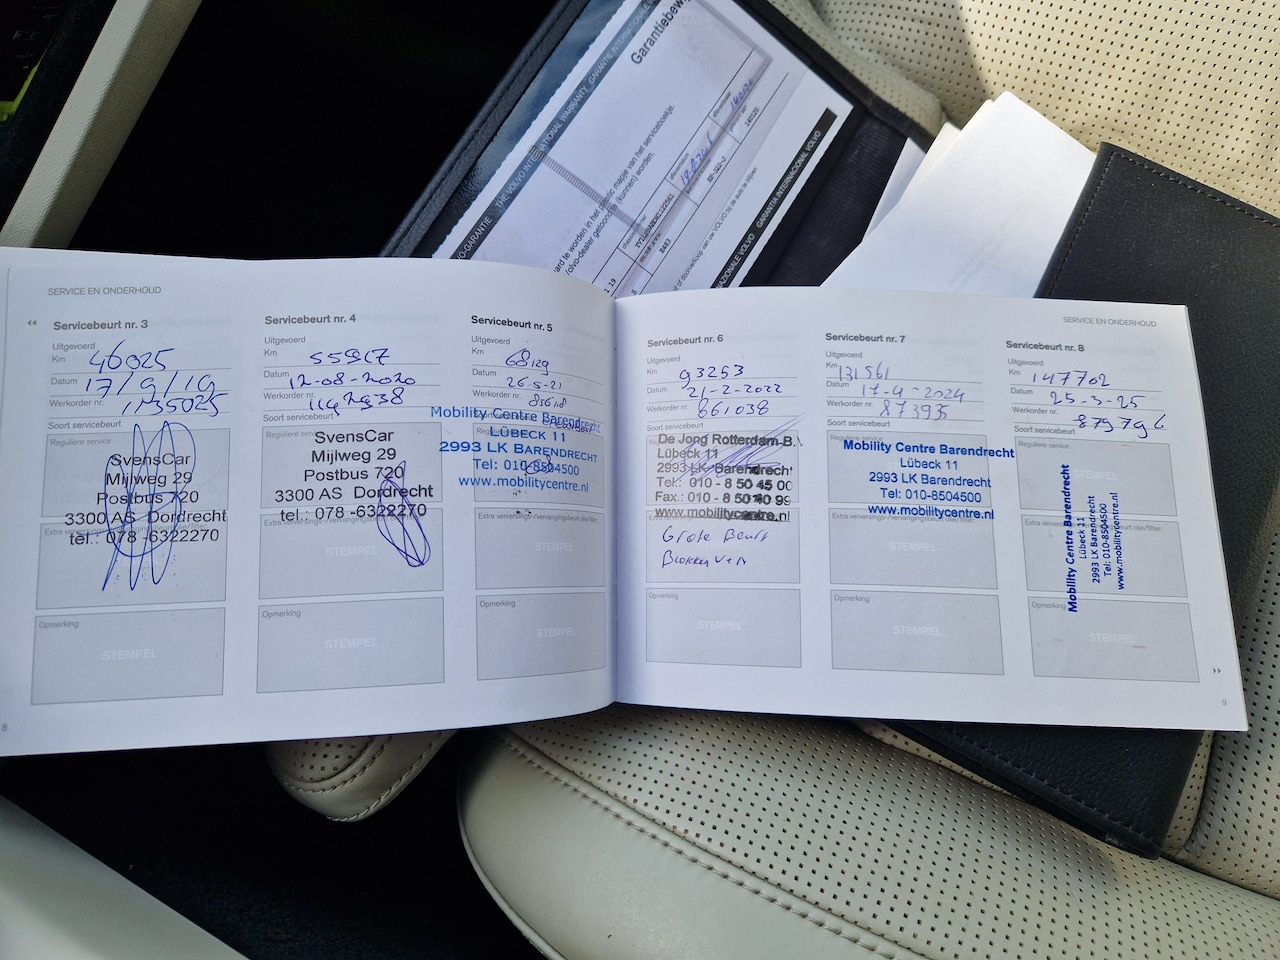 Garantiebew
VO-GARANTIE THE VOLVO INTERNATIONAL WARRANTY GARANTIE INTERNATIONALE
aard te worden in het plastic mapje van het serviceboekje.
Volvo-dealer getoond te (kunnen) worden.
140120
8483
of doorverkoop van uw VOLVO bij de auto te blijven
NAZIONALE VOLVO GARANTIA INTERNACIONAL VOLVO
SERVICE EN ONDERHOUD
Servicebeurt nr. 3
Uitgevoerd
Km 46025
Datum 17/9/19
Werkorder nr. 1135025
Soort servicebeurt
Reguliere service
SvensCar
Mijlweg 29
Postbus 720
3300 AS Dordrecht
tel.: 078 -6322270
Opmerking
STEMPEL
Servicebeurt nr. 4
Uitgevoerd
Km 55917
Datum 12-08-2020
Werkorder nr. 1192938
Soort servicebeurt
Reguliere service
SvensCar
Mijlweg 29
Postbus 720
3300 AS Dordrecht
tel.: 078 -6322270
Extra verversings-/vervangingsbeurt olie/filter:
STEMPEL
Opmerking
STEMPEL
Servicebeurt nr. 5
Uitgevoerd
Km 68129
Datum 26-5-21
Werkorder nr.
Soort servicebeurt
Mobility Centre Barendrecht
LÜBECK 11
2993 LK BARENDRECHT
Tel: 010-8504500
www.mobilitycentre.nl
Extra verversings-/vervangingsbeurt olie/filter:
STEMPEL
Opmerking
STEMPEL
8
SERVICE EN ONDERHOUD
Servicebeurt nr. 6
Uitgevoerd
Km 93263
Datum 21-2-2022
Werkorder nr. 861038
Soort servicebeurt
De Jong Rotterdam B.V
Lübeck 11
2993 LK Barendrecht
Tel.: 010 - 8 50 45 00
Fax.: 010 - 8 50 40 99
www.mobilitycentre.nl
Grote Beurt
Opmerking
STEMPEL
Servicebeurt nr. 7
Uitgevoerd
Km 131561
Datum 17-4-2024
Werkorder nr. 873935
Soort servicebeurt
Mobility Centre Barendrecht
Lübeck 11
2993 LK Barendrecht
Tel: 010-8504500
www.mobilitycentre.nl
Extra verversings-/vervangingsbeurt olie/filter:
STEMPEL
Opmerking
STEMPEL
Servicebeurt nr. 8
Uitgevoerd
Km 147702
Datum 25-3-25
Werkorder nr. 879796
Soort servicebeurt
Reguliere service
STEMPEL
Mobility Centre Barendrecht
Lübeck 11
2993 LK Barendrecht
Tel: 010-8504500
www.mobilitycentre.nl
Opmerking
STEMPEL
9